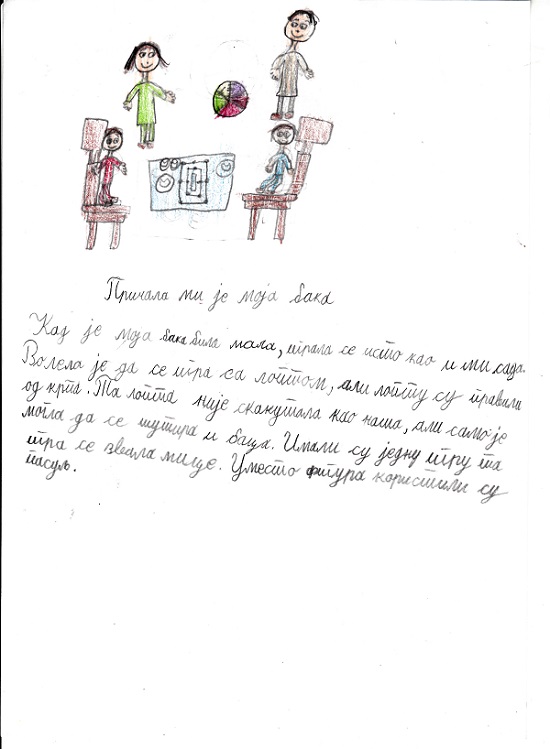 Причала ми је моја бака
Кад је моја бака била мала, играла се исто као и ми сада.
Волела је да се игра са лоптом, али лопту су правили
од крпа. Та лопта није скакутала као наша, али само је
могла да се шутира и баца. Имали су једну игру та
игра се звала мице. Уместо фигура користили су
пасуљ.